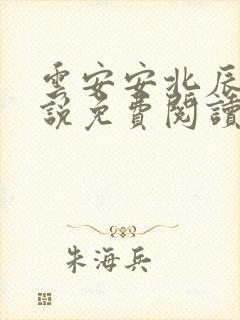 雲安安北辰
說免費閱讀
朱海兵